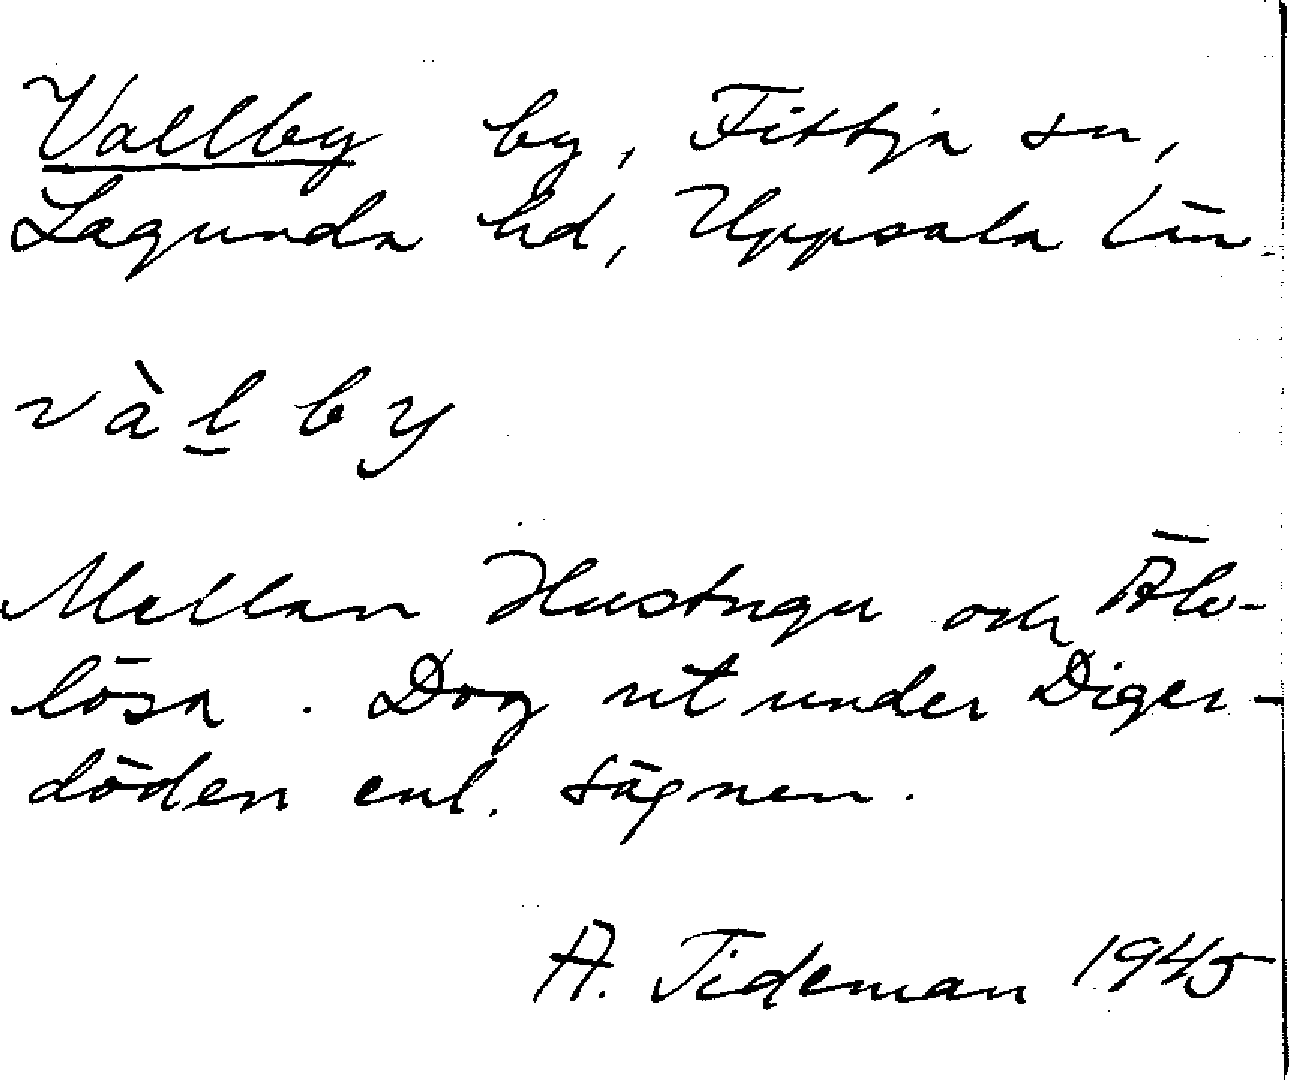 Vallby by, Fittja sn,
Lagunda hd, Uppsala län.
vàl̲by
Mellan Hustugu och Älv-
lösa. Dog ut under Diger-
döden enl. sägnen.
A. Tideman 1945